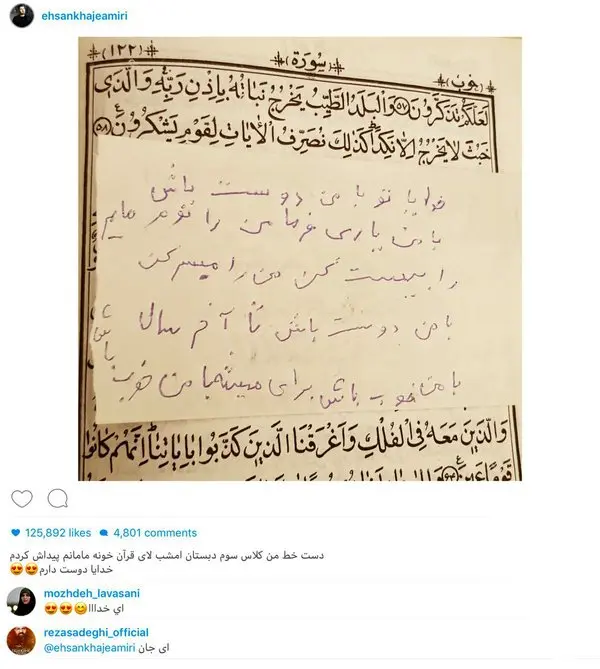 ehsankhajeamiri
(۱۲۲)
سورة
لَعَلَّكُمْ تَذَكَّرُونَ ۵۷ وَالْبَلَدُ الطَّيِّبُ يَخْرُجُ نَبَاتُهُ بِإِذْنِ رَبِّهِ وَالَّذِي
خَبُثَ لَا يَخْرُجُ إِلَّا نَكِدًا كَذَٰلِكَ نُصَرِّفُ الْآيَاتِ لِقَوْمٍ يَشْكُرُونَ ۵۸
خدایا تو با من دوست باش
با من یاری فرما من را
را بیست کن من را میسر کن
با من دوست باش تا آخر سال
با من خوب باش برای میشه با من خوب باش
وَالَّذِينَ مَعَهُ فِي الْفُلْكِ وَأَغْرَقْنَا الَّذِينَ كَذَّبُوا بِآيَاتِنَا إِنَّهُمْ كَانُوا
قَوْمًا عَمِينَ
125,892 likes 4,801 comments
دست خط من كلاس سوم دبستان امشب لای قرآن خونه مامانم پیداش کردم
خدایا دوست دارم😍😍
mozhdeh_lavasani
اي خدااا😊😍😍
rezasadeghi_official
@ehsankhajeamiri ای جان